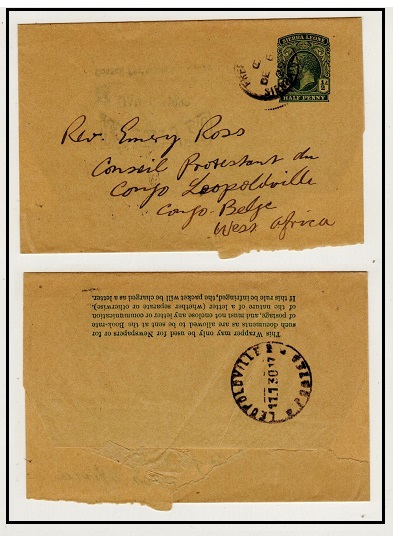 SIERRA LEONE
½
HALF PENNY
Rev. Emery Ross
Conseil Protestant du
Congo Leopoldville
Congo-Belge
West Africa
This Wrapper may only be used for Newspapers or for
such documents as are allowed to be sent at the Book-rate
of postage, and must not enclose any letter or communication
of the nature of a letter (whether separate or otherwise).
If this rule infringed, the packet will be charged as a letter.
LEOPOLDVILLE
11.1 30 17